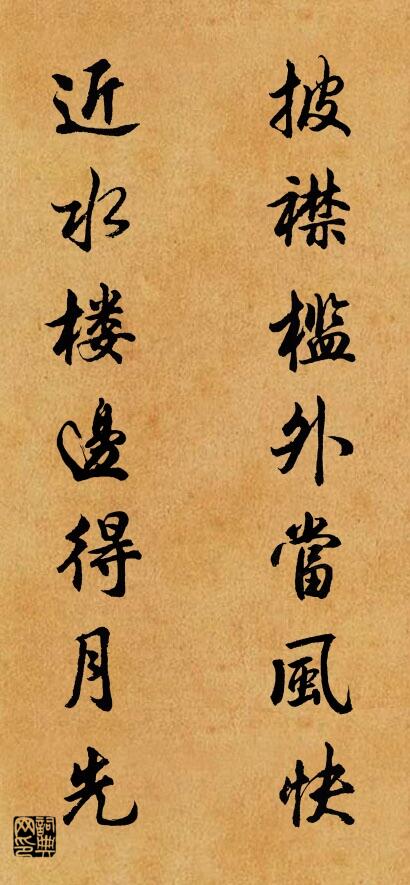 披襟槛外當風快
近水楼邊得月先
詞典网印